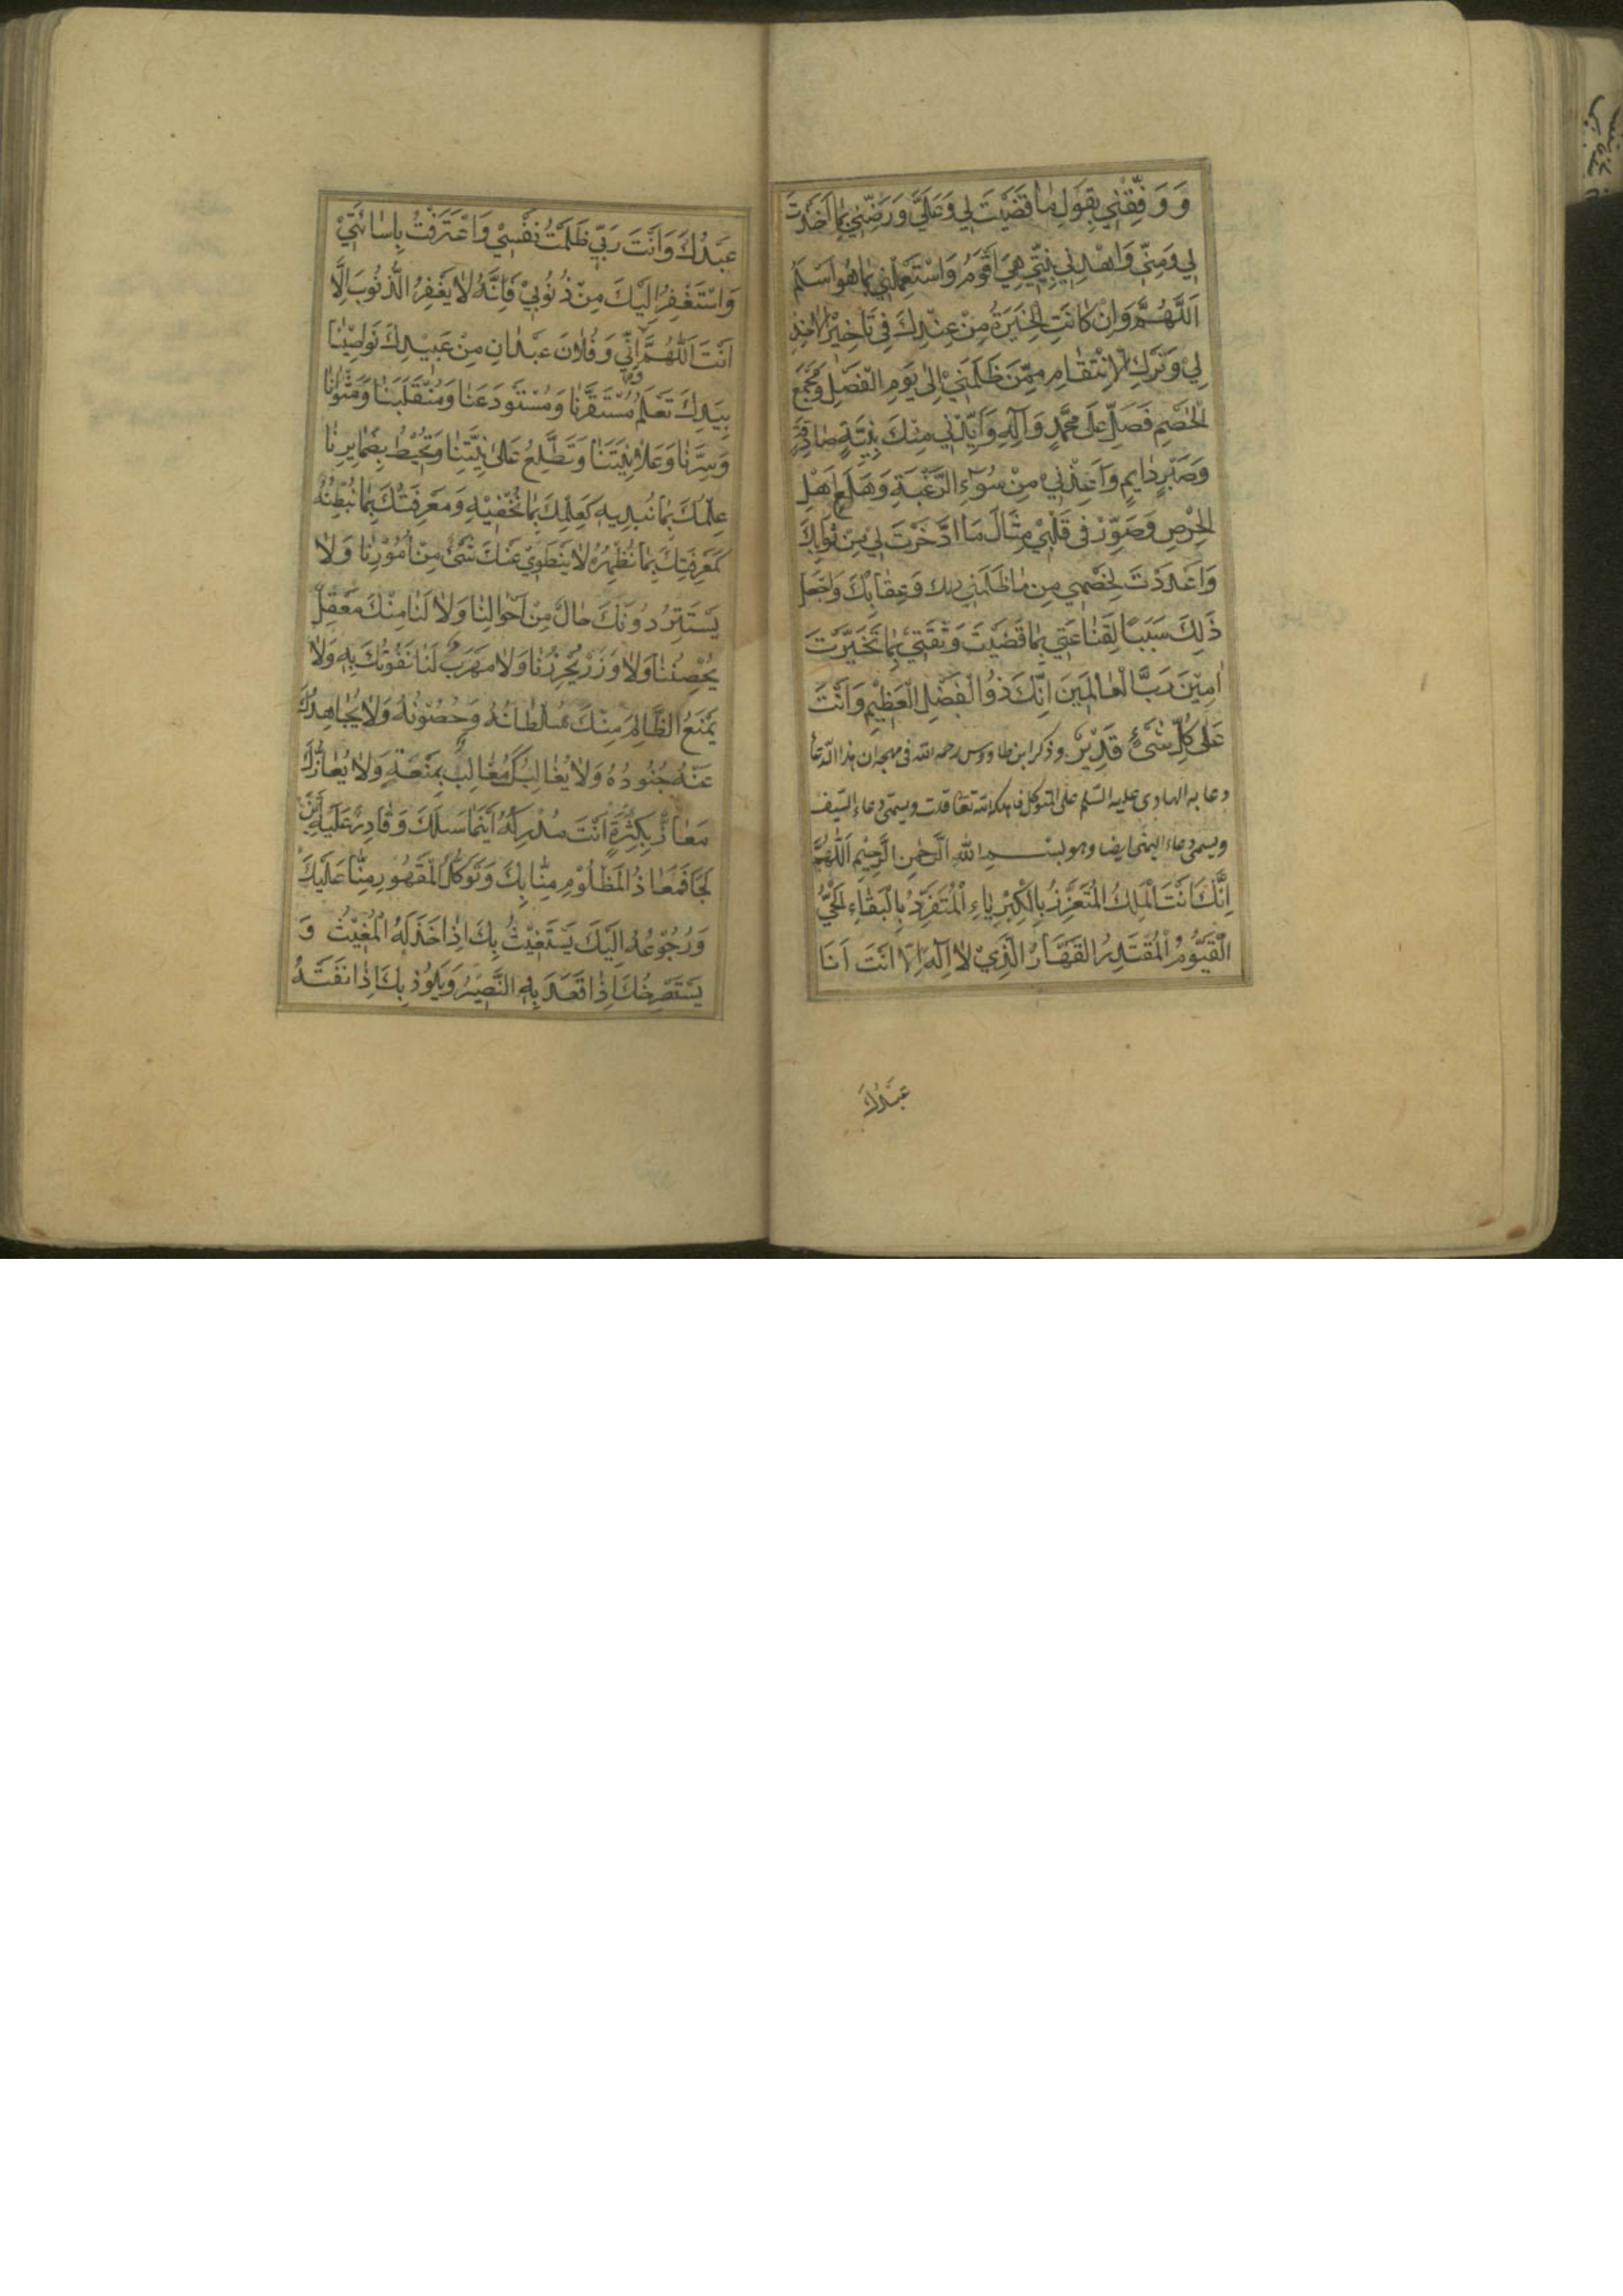 وَ وَفِّقْنِي بِقَوْلِ مٰا قَضَيْتَ لِي وَعَلَيَّ وَرَضِّنِي بِمٰا اَخَذْتَ
لِي وَمِنِّي وَاهْدِنِي لِلَّتِي هِيَ اَقْوَمُ وَاسْتَعْمِلْنِي بِمٰا هُوَ اَسْلَمُ
اَللَّهُمَّ وَاِنْ كٰانَتِ الْخِيَرَةُ مِنْ عِنْدِكَ فِي تَأخِيْرِ الْاَخْذِ
لِيْ وَتَرْكِ الْاِنْتِقٰامِ مِمَّنْ ظَلَمَنِيْ اِلٰى يَوْمِ الْفَصْلِ وَمَجْمَعِ
الْخَصْمِ فَصَلِّ عَلٰى مُحَمَّدٍ وَآلِهِ وَاَيِّدْنِي مِنْكَ بِنِيَّةٍ صٰادِقَةٍ
وَصَبْرٍ دٰايِمٍ وَاَعِذْنِيْ مِنْ سُوٓءِ الرَّغْبَةِ وَهَلَعِ اَهْلِ
الْحِرْصِ وَصَوِّرْ فِي قَلْبِيْ مِثَالَ مَا ادَّخَرْتَ لِي مِنْ ثَوٰابِكَ
وَاَعْدَدْتَ لِخَصْمِي مِنْ مٰا ظَلَمَنِي وَعِقٰابِكَ وَاجْعَلْ
ذٰلِكَ سَبَبًا لِقَنٰاعَتِي بِمٰا قَضَيْتَ وَثِقَتِي بِمٰا تَخَيَّرْتَ
اٰمِيْنَ رَبَّ الْعٰالَمِيْنَ اِنَّكَ ذُوالْفَضْلِ الْعَظِيْمِ وَاَنْتَ
عَلٰى كُلِّ شَىْءٍ قَدِيْرٌ وذكر ابن طاووس رحمه الله فى مهجه ان هذا الدّعا
دعا به الهادى عليه السّلم على المتوكل فاهلكه الله تعٰا قلت ويسمّى دعاء السّيف
ويسمى دعاء اليمنى ايضا وهو بسْـــمِ اللهِ الرَّحْمٰنِ الرَّحِيْمِ اَللّٰهُمَّ
اِنَّكَ اَنْتَ الْمَلِكُ الْمُتَعَزِّزُ بِالْكِبْرِيٰاءِ الْمُتَفَرِّدُ بِالْبَقٰاءِ الْحَيُّ
الْقَيُّوْمُ الْمُقْتَدِرُ الْقَهَّارُ الَّذِيْ لٰا اِلٰهَ اِلّٰا اَنْتَ اَنَا
عَبْدُكَ
عَبْدُكَ وَاَنْتَ رَبِّي ظَلَمْتُ نَفْسِيْ وَاعْتَرَفْتُ بِاِسٰائَتِيْ
وَاَسْتَغْفِرُ اِلَيْكَ مِنْ ذُنُوْبِيْ فَاِنَّهُ لٰا يَغْفِرُ الذُّنُوْبَ اِلَّا
اَنْتَ اَللّٰهُمَّ اِنِّي وَفُلٰانَ عَبْدٰانِ مِنْ عَبِيْدِكَ نَوٰاصِيْنٰا
بِيَدِكَ تَعْلَمُ مُسْتَقَرَّنٰا وَمُسْتَوْدَعَنٰا وَمُنْقَلَبَنٰا وَمَثْوٰانٰا
وَسِرَّنٰا وَعَلٰانِيَتَنٰا وَتَطَّلِعُ عَلٰى نِيَّتِنٰا وَتُحِيْطُ بِضَمٰايِرِنٰا
عِلْمُكَ بِمٰا نُبْدِيهِ كَعِلْمِكَ بِمٰا نُخْفِيْهِ وَمَعْرِفَتُكَ بِمٰا نُبْطِنُهُ
كَمَعْرِفَتِكَ بِمٰا نُظْهِرُهُ لٰا يَنْطَوِيْ عَنْكَ شَىْءٌ مِنْ اُمُوْرِنٰا وَلٰا
يَسْتَتِرُ دُوْنَكَ حٰالٌ مِنْ اَحْوٰالِنٰا وَلٰا لَنٰا مِنْكَ مَعْقِلٌ
يُحْصِنُنٰا وَلٰا وَزَرٌ يُحْرِزُنٰا وَلٰا مَهْرَبٌ لَنٰا نَفُوْتُكَ بِهِ وَلٰا
يَمْنَعُ الظّٰالِمَ مِنْكَ سُلْطٰانُهُ وَحُصُوْنُهُ وَلٰا يُجٰاهِدُكَ
عَنْهُ جُنُوْدُهُ وَلٰا يُغٰالِبُكَ مُغٰالِبٌ بِمَنْعَةٍ وَلٰا يُعٰازُّكَ
مَعٰازٌّ بِكَثْرَةٍ اَنْتَ مُدْرِكُهُ اَيْنَمٰا سَلَكَ وَقٰادِرٌ عَلَيْهِ اَيْنَ
لَجَأَ فَمَعٰاذُ الْمَظْلُوْمِ مِنّٰا بِكَ وَتَوَكُّلُ الْمَقْهُوْرِ مِنّٰا عَلَيْكَ
وَرُجُوْعُهُ اِلَيْكَ يَسْتَغِيْثُ بِكَ اِذٰا خَذَلَهُ الْمُغِيْثُ وَ
يَسْتَصْرِخُكَ اِذٰا قَعَدَ بِهِ النَّصِيْرُ وَيَلُوْذُ بِكَ اِذٰا نَفَتْهُ